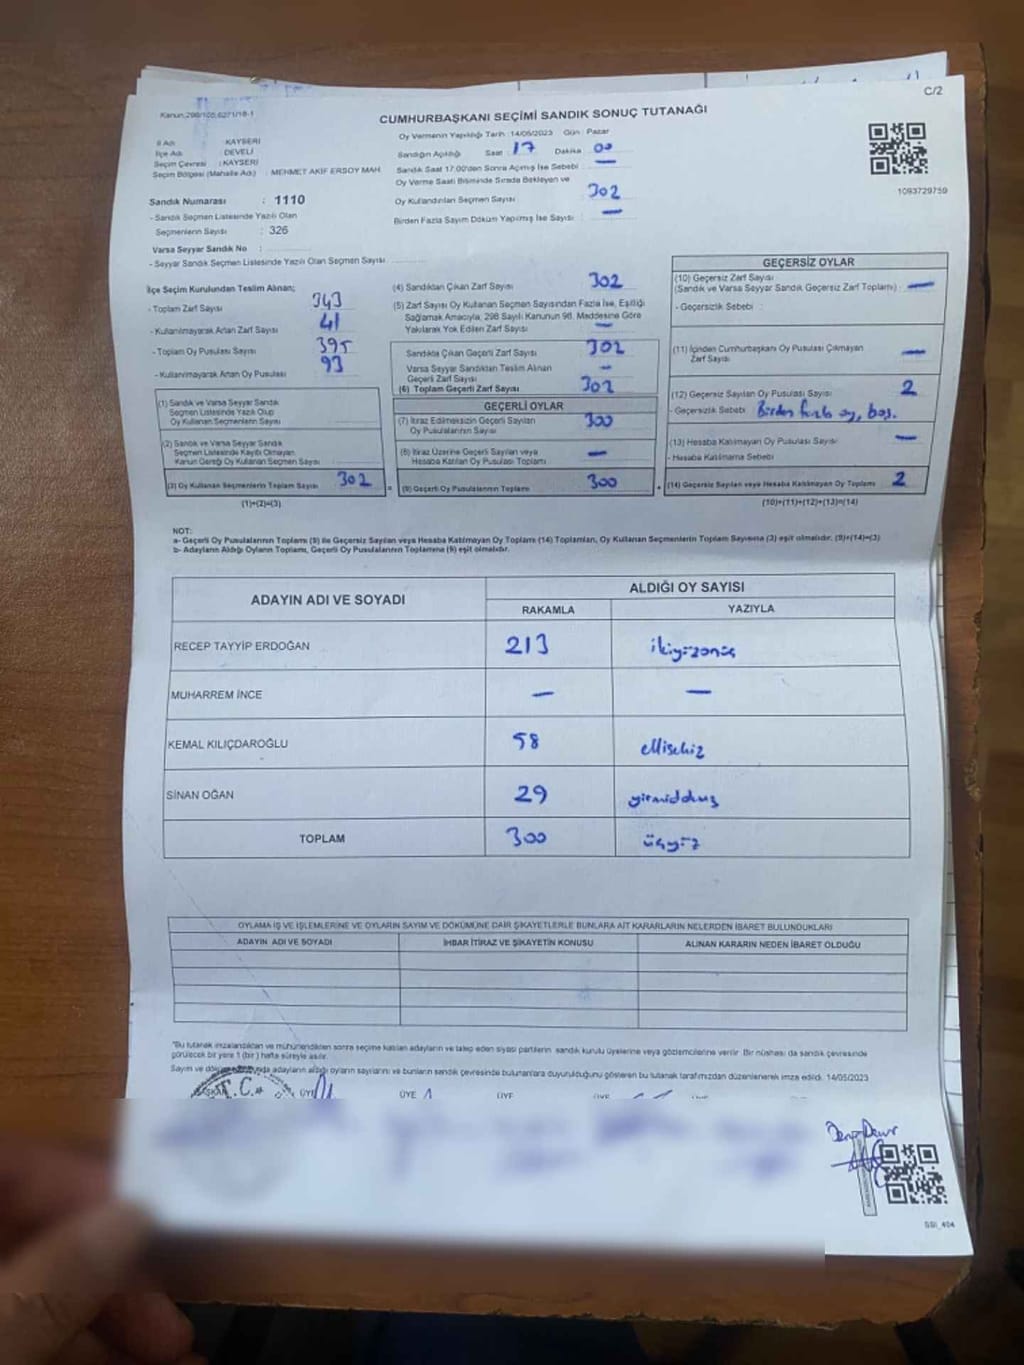 C/2
Kanun:298/105,6271/18-1
CUMHURBAŞKANI SEÇİMİ SANDIK SONUÇ TUTANAĞI
Oy Vermenin Yapıldığı Tarih : 14/05/2023 Gün : Pazar
İl Adı : KAYSERİ
İlçe Adı : DEVELİ
Seçim Çevresi : KAYSERİ
Seçim Bölgesi (Mahalle Adı) : MEHMET AKİF ERSOY MAH.
Sandığın Açıldığı Saat : 17 Dakika : 00
Sandık Saat 17:00'den Sonra Açılmış İse Sebebi : —
Oy Verme Saati Bitiminde Sırada Bekleyen ve
Oy Kullandırılan Seçmen Sayısı : 302
Birden Fazla Sayım Döküm Yapılmış İse Sayısı : —
1093729759
Sandık Numarası : 1110
- Sandık Seçmen Listesinde Yazılı Olan
Seçmenlerin Sayısı : 326
Varsa Seyyar Sandık No :
- Seyyar Sandık Seçmen Listesinde Yazılı Olan Seçmen Sayısı :
İlçe Seçim Kurulundan Teslim Alınan;
- Toplam Zarf Sayısı : 343
- Kullanılmayarak Artan Zarf Sayısı : 41
- Toplam Oy Pusulası Sayısı : 395
- Kullanılmayarak Artan Oy Pusulası : 93
(1) Sandık ve Varsa Seyyar Sandık
Seçmen Listesinde Yazılı Olup
Oy Kullanan Seçmenlerin Sayısı :
(2) Sandık ve Varsa Seyyar Sandık
Seçmen Listesinde Kaydı Olmayan,
Kanun Gereği Oy Kullanan Seçmen Sayısı :
(3) Oy Kullanan Seçmenlerin Toplam Sayısı : 302
(1)+(2)=(3)
(4) Sandıktan Çıkan Zarf Sayısı : 302
(5) Zarf Sayısı Oy Kullanan Seçmen Sayısından Fazla İse, Eşitliği
Sağlamak Amacıyla, 298 Sayılı Kanunun 98. Maddesine Göre
Yakılarak Yok Edilen Zarf Sayısı : —
Sandıkta Çıkan Geçerli Zarf Sayısı : 302
Varsa Seyyar Sandıktan Teslim Alınan
Geçerli Zarf Sayısı : —
(6) Toplam Geçerli Zarf Sayısı : 302
GEÇERLİ OYLAR
(7) İtiraz Edilmeksizin Geçerli Sayılan
Oy Pusulalarının Sayısı : 300
(8) İtiraz Üzerine Geçerli Sayılan veya
Hesaba Katılan Oy Pusulası Toplamı : —
= (9) Geçerli Oy Pusulalarının Toplamı : 300
GEÇERSİZ OYLAR
(10) Geçersiz Zarf Sayısı
(Sandık ve Varsa Seyyar Sandık Geçersiz Zarf Toplamı) : —
- Geçersizlik Sebebi :
(11) İçinden Cumhurbaşkanı Oy Pusulası Çıkmayan
Zarf Sayısı : —
(12) Geçersiz Sayılan Oy Pusulası Sayısı : 2
- Geçersizlik Sebebi : Birden fazla oy, boş.
(13) Hesaba Katılmayan Oy Pusulası Sayısı : —
- Hesaba Katılmama Sebebi :
+ (14) Geçersiz Sayılan veya Hesaba Katılmayan Oy Toplamı : 2
(10)+(11)+(12)+(13)=(14)
NOT:
a- Geçerli Oy Pusulalarının Toplamı (9) ile Geçersiz Sayılan veya Hesaba Katılmayan Oy Toplamı (14) Toplamları, Oy Kullanan Seçmenlerin Toplam Sayısına (3) eşit olmalıdır. (9)+(14)=(3)
b- Adayların Aldığı Oyların Toplamı, Geçerli Oy Pusulalarının Toplamına (9) eşit olmalıdır.
ADAYIN ADI VE SOYADI
ALDIĞI OY SAYISI
RAKAMLA YAZIYLA
RECEP TAYYİP ERDOĞAN 213 ikiyüzonüç
MUHARREM İNCE — —
KEMAL KILIÇDAROĞLU 58 ellisekiz
SİNAN OĞAN 29 yirmidokuz
TOPLAM 300 üçyüz
OYLAMA İŞ VE İŞLEMLERİNE VE OYLARIN SAYIM VE DÖKÜMÜNE DAİR ŞİKAYETLERLE BUNLARA AİT KARARLARIN NELERDEN İBARET BULUNDUKLARI
ADAYIN ADI VE SOYADI İHBAR İTİRAZ VE ŞİKAYETİN KONUSU ALINAN KARARIN NEDEN İBARET OLDUĞU
"Bu tutanak imzalandıktan ve mühürlendikten sonra seçime katılan adayların ve talep eden siyasi partilerin sandık kurulu üyelerine veya gözlemcilerine verilir. Bir nüshası da sandık çevresinde
görülecek bir yere 1 (bir) hafta süreyle asılır.
Sayım ve adayların aldığı oyların sayılarını ve bunların sandık çevresinde bulunanlara duyurulduğunu gösteren bu tutanak tarafımızdan düzenlenerek imza edildi. 14/05/2023
T.C. ÜYE ÜYE ÜYE
SSİ_404